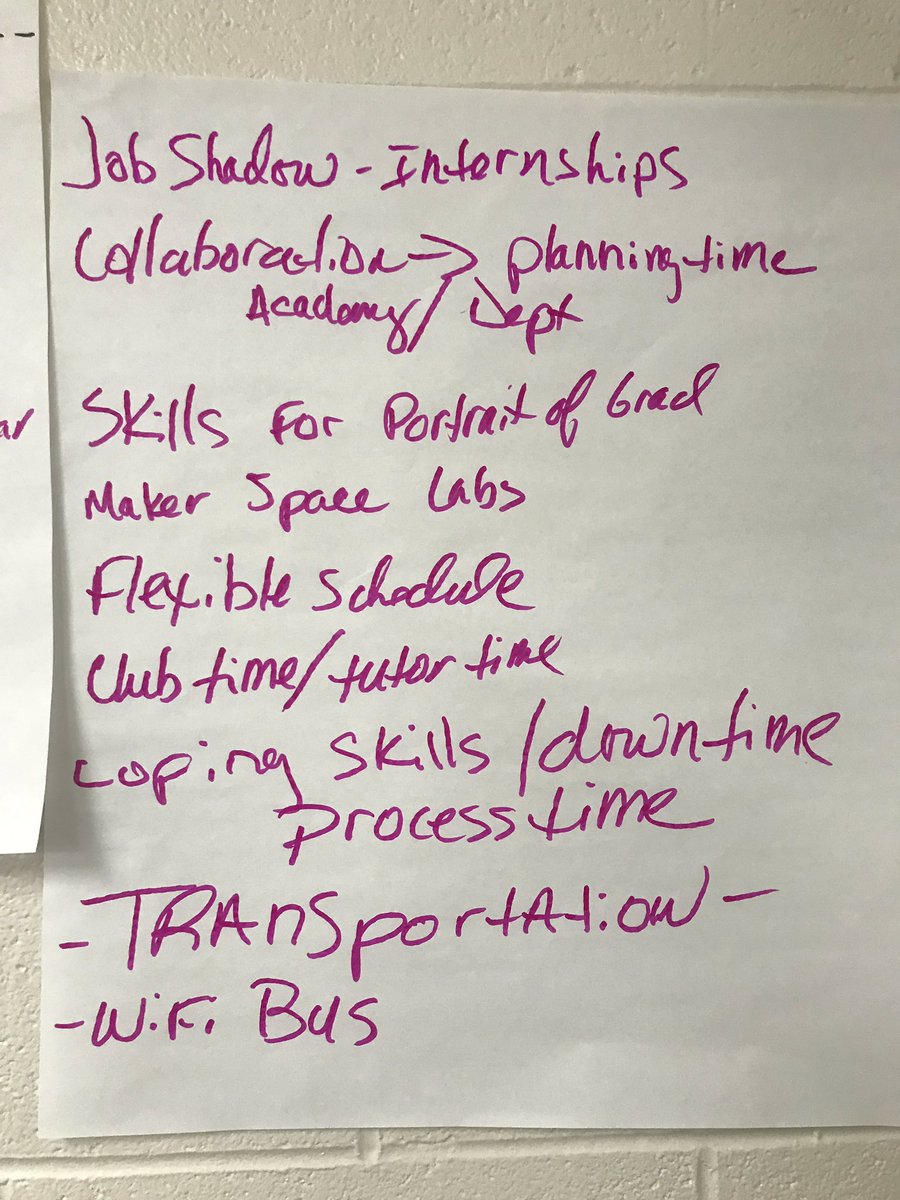 Job Shadow - Internships
Collaboration → planning time
Academy / Dept
Skills For Portrait of Grad
Maker Space Labs
Flexible Schedule
Club time/tutor time
Coping Skills /downtime
process time
- TRAnSportAtion -
- WiFi Bus
ar